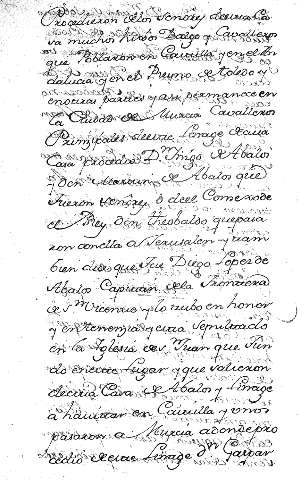 Procedieron de los Señores de esta Ca
sa muchos hixos Dalgo y Cavalleros
que Poblaron en Castilla y en el An
dalucia y en el Reyno de Toledo y
en otras partes y asi permanece en
la Ciudad de Murcia Cavalleros
Principales de este Linage de cuia
Casa procedio Dn. Iñigo de Abalos
y Don de Abalos que
fueron Señores de el Rey
el Rey don theobaldo que pasa
ron con ella a Jerusalen y tam
bien dice que fue Diego Lopez de
Abalos Capitan de la frontera
de Sn. Vicente y lo tubo en honor
y en tenencia y esta Sepultado
en la Iglesia de Sn. Juan que fun
do en este Lugar y que salieron
de esta Casa de Abalos y Linage
a havitar en Castilla y unos
pasaron a Murcia adonde pro
cedio de este Linage Dn. Gaspar